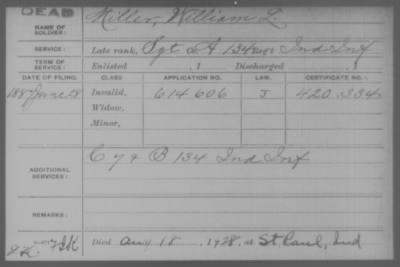 DEAD
NAME OF SOLDIER: Miller, William L.
SERVICE: Late rank, Sgt Co A 134 Regt Ind Inf
TERM OF SERVICE: Enlisted , 1 Discharged , 1
DATE OF FILING. CLASS. APPLICATION NO. LAW. CERTIFICATE NO.
1887 June 28 Invalid, 614 606 J 420.334
Widow,
Minor,
ADDITIONAL SERVICES: C 134 Ind Inf
REMARKS:
Died Aug 18, 1928, at St Paul, Ind